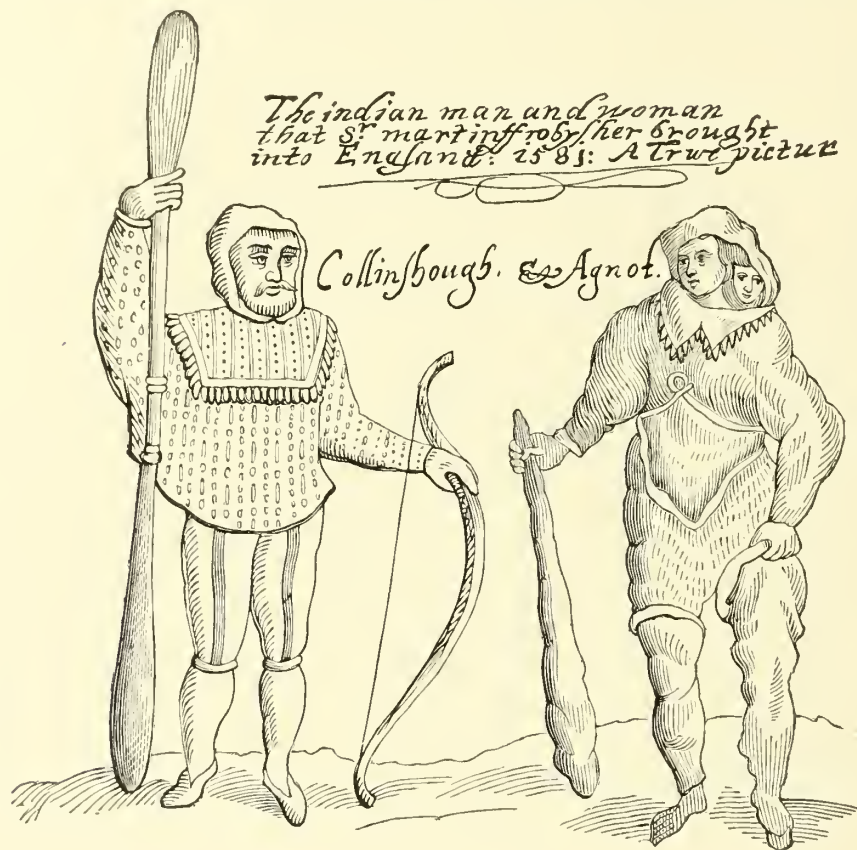 The indian man and woman
that Sr. martin ffrobysher brought
into England: 1581: A Trwe pictur
Collinshough. & Agnot.